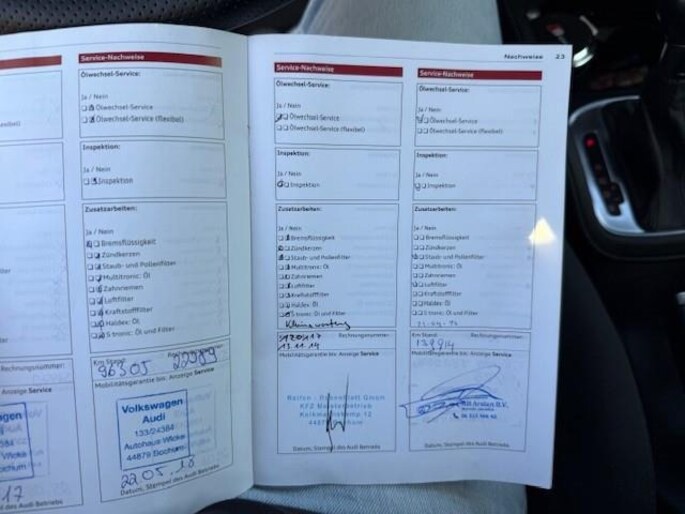 Service-Nachweise
Ölwechsel-Service:
Ja / Nein
Ölwechsel-Service
Ölwechsel-Service (flexibel)
Inspektion:
Ja / Nein
Inspektion
Zusatzarbeiten:
Ja / Nein
Bremsflüssigkeit
Zündkerzen
Staub- und Pollenfilter
Multitronic: Öl
Zahnriemen
Luftfilter
Kraftstofffilter
Haldex: Öl
S tronic: Öl und Filter
Km Stand:
96305 22989
Mobilitätsgarantie bis: Anzeige Service
Volkswagen
Audi
133/24384
Autohaus Wicke
44879 Bochum
22.05.18
Datum, Stempel des Audi Betriebs
Nachweise 23
Service-Nachweise
Ölwechsel-Service:
Ja / Nein
Ölwechsel-Service
Ölwechsel-Service (flexibel)
Inspektion:
Ja / Nein
Inspektion
Zusatzarbeiten:
Ja / Nein
Bremsflüssigkeit
Zündkerzen
Staub- und Pollenfilter
Multitronic: Öl
Zahnriemen
Luftfilter
Kraftstofffilter
Haldex: Öl
S tronic: Öl und Filter
Rechnungsnummer:
Mobilitätsgarantie bis: Anzeige Service
GmbH
KFZ Meisterbetrieb
12
Datum, Stempel des Audi Betriebs
Service-Nachweise
Ölwechsel-Service:
Ja / Nein
Ölwechsel-Service
Ölwechsel-Service (flexibel)
Inspektion:
Ja / Nein
Inspektion
Zusatzarbeiten:
Ja / Nein
Bremsflüssigkeit
Zündkerzen
Staub- und Pollenfilter
Multitronic: Öl
Zahnriemen
Luftfilter
Kraftstofffilter
Haldex: Öl
S tronic: Öl und Filter
Km Stand: Rechnungsnummer:
139914
Mobilitätsgarantie bis: Anzeige Service
B.V.
Datum, Stempel des Audi Betriebs